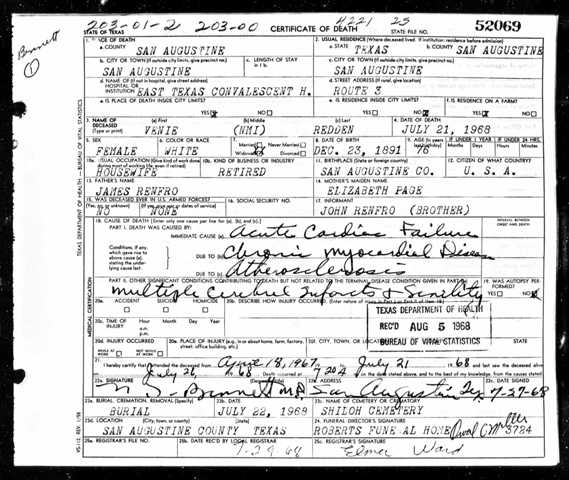 203-01-2 203-00 4221 25
STATE OF TEXAS CERTIFICATE OF DEATH STATE FILE NO. 52069
Bennett
1
1. PLACE OF DEATH 2. USUAL RESIDENCE (Where deceased lived. If institution: residence before admission)
a. COUNTY SAN AUGUSTINE a. STATE TEXAS b. COUNTY SAN AUGUSTINE
b. CITY OR TOWN (If outside city limits, give precinct no.) c. LENGTH OF STAY in 1 b. c. CITY OR TOWN (If outside city limits, give precinct no.)
SAN AUGUSTINE SAN AUGUSTINE
d. NAME OF (If not in hospital, give street address) HOSPITAL OR INSTITUTION EAST TEXAS CONVALESCENT H. d. STREET ADDRESS (If rural, give location) ROUTE 3
e. IS PLACE OF DEATH INSIDE CITY LIMITS? YES NO e. IS RESIDENCE INSIDE CITY LIMITS? YES NO f. IS RESIDENCE ON A FARM? YES NO
3. NAME OF DECEASED (Type or print) (a) First VENIE (b) Middle (NMI) (c) Last REDDEN 4. DATE OF DEATH JULY 21, 1968
5. SEX FEMALE 6. COLOR OR RACE WHITE 7. Married Never Married Widowed Divorced 8. DATE OF BIRTH DEC. 23, 1891 9. AGE 76 IF UNDER 1 YEAR Months Days IF UNDER 24 HRS. Hours Min.
10a. USUAL OCCUPATION (Give kind of work done during most of working life, even if retired) HOUSEWIFE 10b. KIND OF BUSINESS OR INDUSTRY RETIRED 11. BIRTHPLACE (State or foreign country) SAN AUGUSTINE CO. 12. CITIZEN OF WHAT COUNTRY? U. S. A.
13. FATHER'S NAME JAMES RENFRO 14. MOTHER'S MAIDEN NAME ELIZABETH PAGE
15. WAS DECEASED EVER IN U.S. ARMED FORCES? NO NONE 16. SOCIAL SECURITY NO. 17. INFORMANT JOHN RENFRO (BROTHER)
18. CAUSE OF DEATH (Enter only one cause per line for (a), (b), and (c).) INTERVAL BETWEEN ONSET AND DEATH
PART I. DEATH WAS CAUSED BY: IMMEDIATE CAUSE (a) Acute Cardiac Failure
Conditions, if any, which gave rise to above cause (a), stating the underlying cause last. DUE TO (b) Chronic Myocardial Disease
DUE TO (c) Atherosclerosis
PART II. OTHER SIGNIFICANT CONDITIONS CONTRIBUTING TO DEATH BUT NOT RELATED TO THE TERMINAL DISEASE CONDITION GIVEN IN PART I 19. WAS AUTOPSY PERFORMED? YES NO
Multiple Cerebral Infarcts & Senility
20a. ACCIDENT SUICIDE HOMICIDE 20b. DESCRIBE HOW INJURY OCCURRED.
20c. TIME OF INJURY Hour Month Day Year a.m. p.m.
TEXAS DEPARTMENT OF HEALTH
REC'D AUG 5 1968
BUREAU OF VITAL STATISTICS
20d. INJURY OCCURRED WHILE AT WORK NOT WHILE AT WORK 20e. PLACE OF INJURY (e.g., in or about home, farm, factory, street, office building, etc.) 20f. CITY, TOWN, OR LOCATION
21. I hereby certify that I attended the deceased from April 18, 1967 to July 21 1968 and last saw the deceased alive on July 21 1968 Death occurred at
22a. SIGNATURE Bennett M.D. 22b. ADDRESS San Augustine Tex 22c. DATE SIGNED 7-27-68
23a. BURIAL, CREMATION, REMOVAL (Specify) BURIAL 23b. DATE JULY 22, 1968 23c. NAME OF CEMETERY OR CREMATORY SHILOH CEMETERY
23d. LOCATION SAN AUGUSTINE COUNTY TEXAS 24. FUNERAL DIRECTOR'S SIGNATURE ROBERTS FUNERAL HOME 3784
25a. REGISTRAR'S FILE NO. 25b. DATE REC'D BY LOCAL REGISTRAR 7-29-68 25c. REGISTRAR'S SIGNATURE Elmer Ward
TEXAS DEPARTMENT OF HEALTH - BUREAU OF VITAL STATISTICS
MEDICAL CERTIFICATION